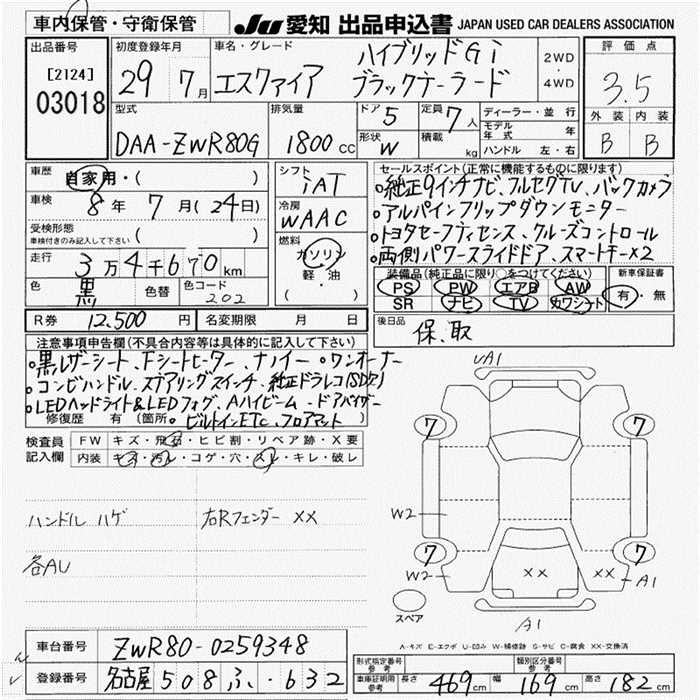 車内保管・守衛保管
JU 愛知 出品申込書 JAPAN USED CAR DEALERS ASSOCIATION
出品番号
[2124]
03018
初度登録年月
29年 7月
車名・グレード
エスクァイア
ハイブリッドGi
ブラックテーラード
2WD
4WD
評価点
3.5
外装 内装
B B
型式
DAA-ZWR80G
排気量
1800cc
ドア 5
形状 W
定員 7人
積載 kg
ディーラー・並行
モデル年式 年
ハンドル 左・右
車歴
自家用・( )
車検
8年 7月(24日)
受検形態
車検付きのみ記入して下さい ( )
走行
3万4千670km
色
黒
色替
色コード
202
シフト
iAT
冷房
WAAC
燃料
ガソリン
軽・油
( )
セールスポイント(正常に機能するものに限ります)
・純正9インチナビ、フルセグTV、バックカメラ
・アルパインフリップダウンモニター
・トヨタセーフティセンス、クルーズコントロール
・両側パワースライドドア、スマートキー×2
装備品(純正品に限り○をつけてください)
PS PW エアB AW
SR ナビ TV カワシート
新車保証書
有・無
R券 12,500円
名変期限 月 日
後日品
保、取
注意事項申告欄(不具合内容等は具体的に記入して下さい)
・黒レザーシート、Fシートヒーター、ナノイー ・ワンオーナー
・コンビハンドル、ステアリングスイッチ、純正ドラレコ(SD欠)
・LEDヘッドライト&LEDフォグ、Aハイビーム・ドアバイザー
修復歴 有 (箇所・ビルトインETC、フロアマット
検査員
記入欄
FW キズ・飛石・ヒビ割・リペア跡・X要
内装 キズ・汚レ・コゲ・穴・スレ・キレ・破レ
ハンドル ハゲ
右Rフェンダー XX
各AU
UA1
7 7
W2
7 7
W2
XX XX
A1
A1
スペア
A-キズ E-エクボ U-凹み W-補修跡 S-サビ C-腐食 XX-交換済
車台番号
ZWR80-0259348
登録番号
名古屋 508 ふ・632
形式指定番号
参考
類別区分番号
参考
車庫証明用
参考
長さ 469cm 幅 169cm 高さ 182cm